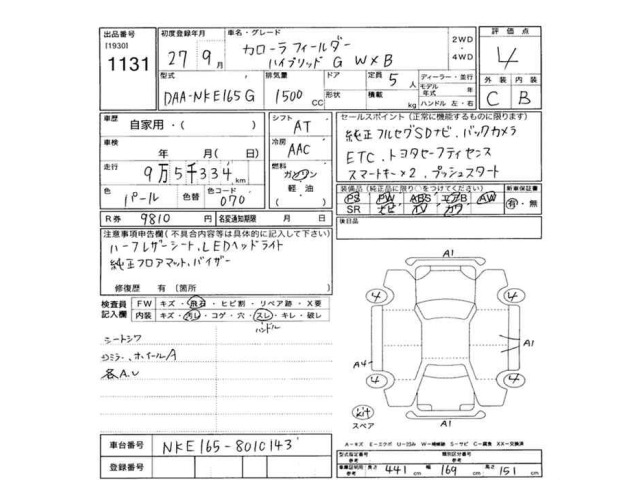 出品番号
[1930]
1131
初度登録年月
27年 9月
車名・グレード
カローラフィールダー
ハイブリッド G W×B
2WD
4WD
評価点
4
外装 内装
C B
型式
DAA-NKE165G
排気量
1500 CC
ドア
形状
定員 5人
積載 kg
ディーラー・並行
モデル年式 年
ハンドル 左・右
車歴
自家用・( )
車検
年 月( 日)
走行
9万5千334 km
色
パール
色替
色コード
070
シフト
AT
冷房
AAC
燃料
ガソリン
軽油
( )
セールスポイント (正常に機能するものに限ります)
純正フルセグSDナビ、バックカメラ
ETC、トヨタセーフティセンス
スマートキー×2、プッシュスタート
装備品(純正品に限り○をつけてください)
PS PW ABS エアB AW
SR ナビ TV カワ
新車保証書
有・無
後日品
R券 9810 円
名変通知期限 月 日
注意事項申告欄(不具合内容等は具体的に記入して下さい)
ハーフレザーシート、LEDヘッドライト
純正フロアマット、バイザー
修復歴 有 (箇所 )
検査員記入欄
FW キズ・飛石・ヒビ割・リペア跡・X要
内装 キズ・汚レ・コゲ・穴・スレ・キレ・破レ
ハンドル
シートシワ
ミラー、ホイールA
各A、U
A1
4
4
A4
A1
4
4
kit
スペア
A1
A-キズ E-エクボ U-凹み W-補修跡 S-サビ C-腐食 XX-交換済
車台番号 NKE165-8010143
登録番号
型式指定番号 参考
類別区分番号 参考
車庫証明用参考 長さ 441 幅 169 高さ 151 cm